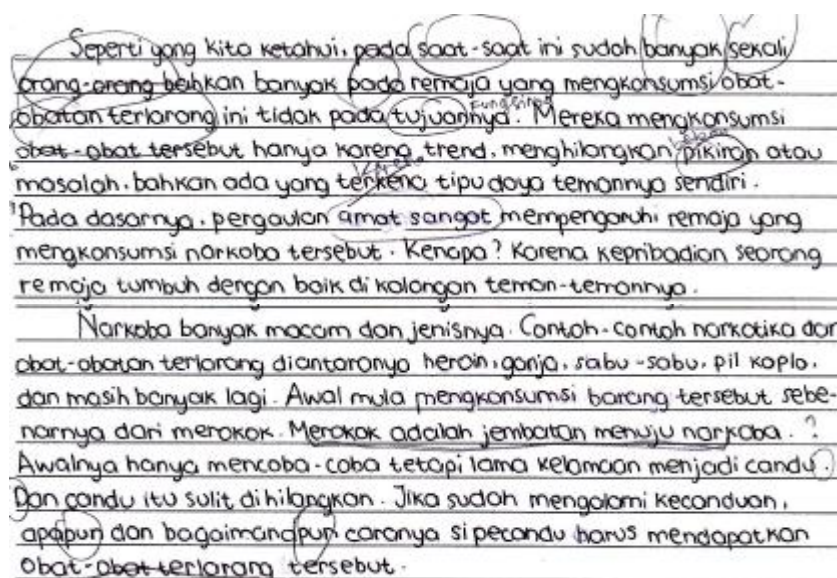 Seperti yang kita ketahui, pada saat-saat ini sudah banyak sekali
orang-orang bahkan banyak pada remaja yang mengkonsumsi obat-
obatan terlarang ini tidak pada tujuannya. fungsinya Mereka mengkonsumsi
obat-obat tersebut hanya karena trend, menghilangkan pikiran atau
masalah, bahkan ada yang terkena tipu daya temannya sendiri.
Pada dasarnya, pergaulan amat sangat mempengaruhi remaja yang
mengkonsumsi narkoba tersebut. Kenapa? Karena kepribadian seorang
remaja tumbuh dengan baik di kalangan teman-temannya.
Narkoba banyak macam dan jenisnya. Contoh-contoh narkotika dan
obat-obatan terlarang diantaranya heroin, ganja, sabu-sabu, pil koplo,
dan masih banyak lagi. Awal mula mengkonsumsi barang tersebut sebe-
narnya dari merokok. Merokok adalah jembatan menuju narkoba. ?
Awalnya hanya mencoba-coba tetapi lama kelamaan menjadi candu.
Dan candu itu sulit dihilangkan. Jika sudah mengalami kecanduan,
apapun dan bagaimanapun caranya si pecandu harus mendapatkan
obat-obat terlarang tersebut.